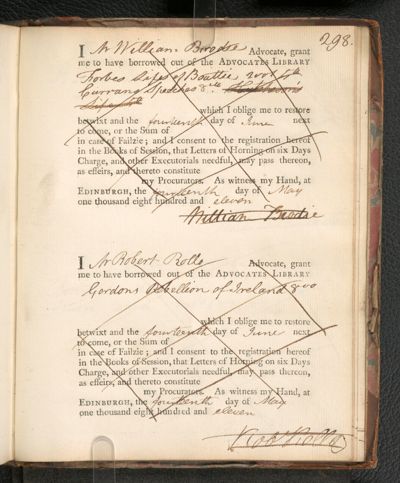 298.
I Mr William Brodie Advocate, grant
me to have borrowed out of the ADVOCATES LIBRARY
Forbes Life of Beattie, 2 vol 4to
Currans Speeches 8vo
which I oblige me to restore
betwixt and the fourteenth day of June next
to come, or the Sum of
in case of Failzie; and I consent to the registration hereof
in the Books of Session, that Letters of Horning on six Days
Charge, and other Executorials needful, may pass thereon,
as effeirs, and thereto constitute
my Procurators. As witness my Hand, at
EDINBURGH, the fourteenth day of May
one thousand eight hundred and eleven
William Brodie
I Mr Robert Rolle Advocate, grant
me to have borrowed out of the ADVOCATES LIBRARY
Gordons Rebellion of Ireland 8vo
which I oblige me to restore
betwixt and the fourteenth day of June next
to come, or the Sum of
in case of Failzie; and I consent to the registration hereof
in the Books of Session, that Letters of Horning on six Days
Charge, and other Executorials needful, may pass thereon,
as effeirs, and thereto constitute
my Procurators. As witness my Hand, at
EDINBURGH, the fourteenth day of May
one thousand eight hundred and eleven
Robt Rolle